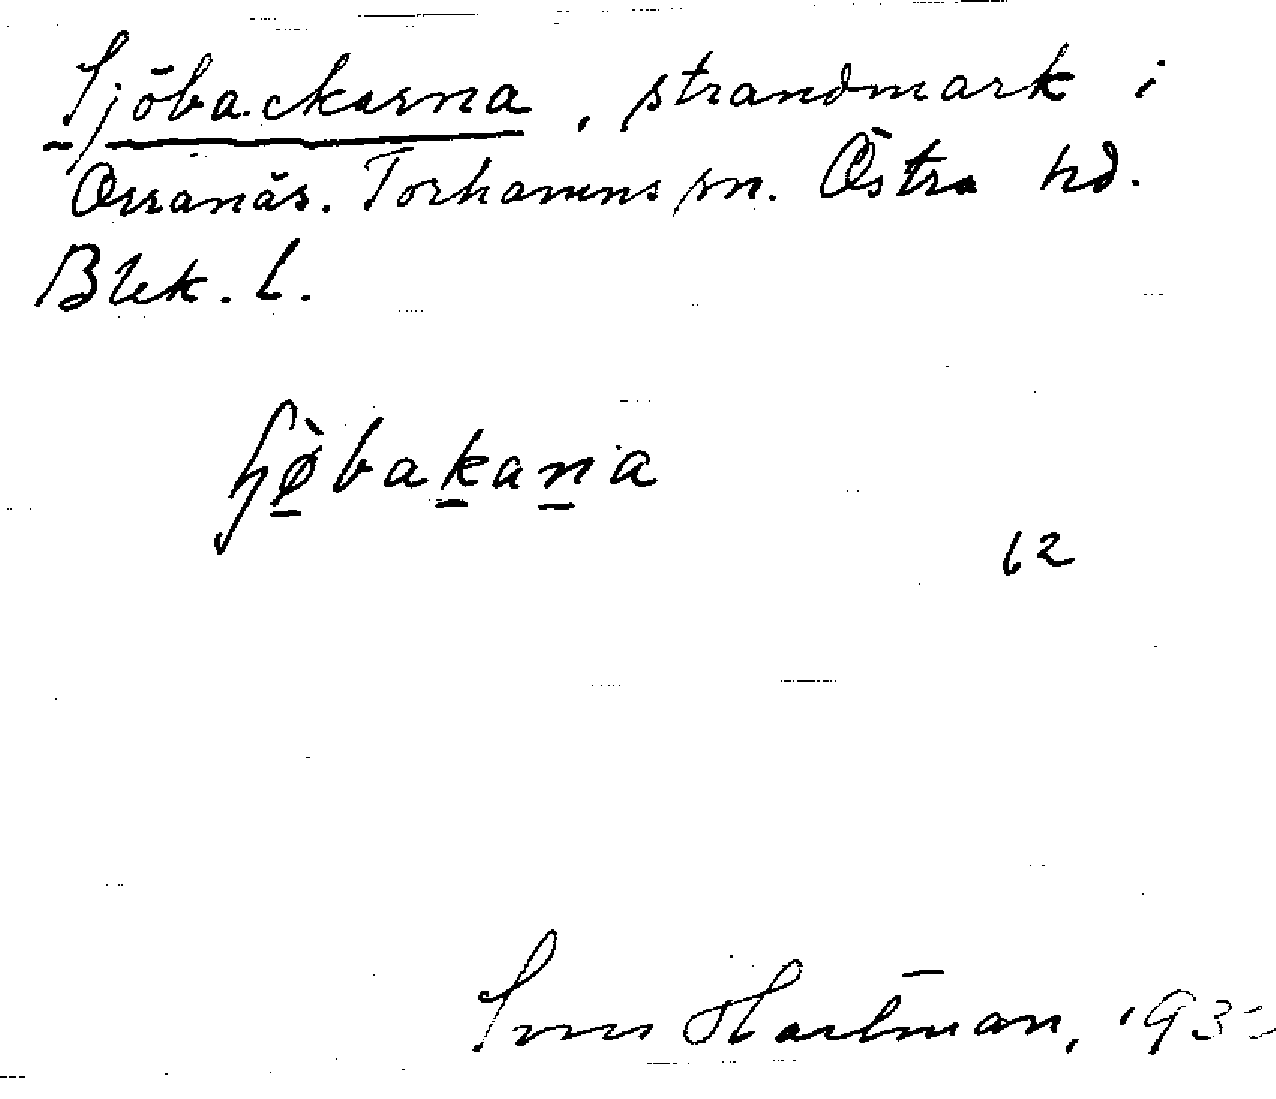 Sjöbackarna, strandmark i
Orranäs. Torhamns sn. Östra hd.
Blek. l.
62
Sven Hartman,